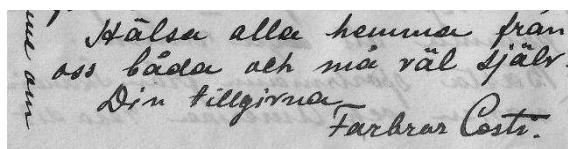 Hälsa alla hemma från
oss båda och må väl själv.
Din tillgivna
Farbror Costi.